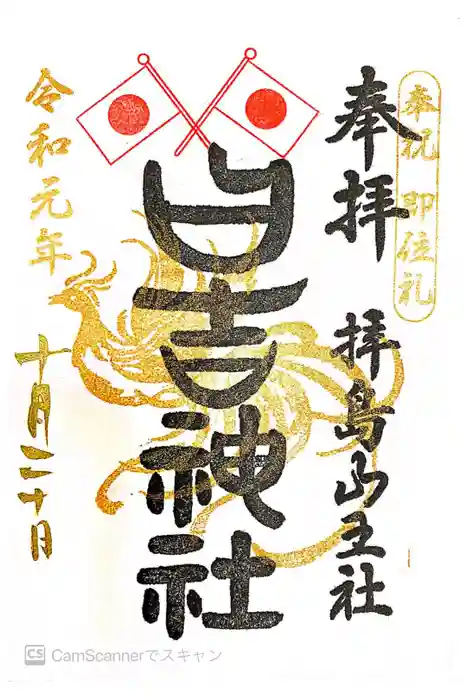 奉祝 即位礼
奉拝 拝島山王社
日吉神社
令和元年
十月二十日
CS CamScannerでスキャン